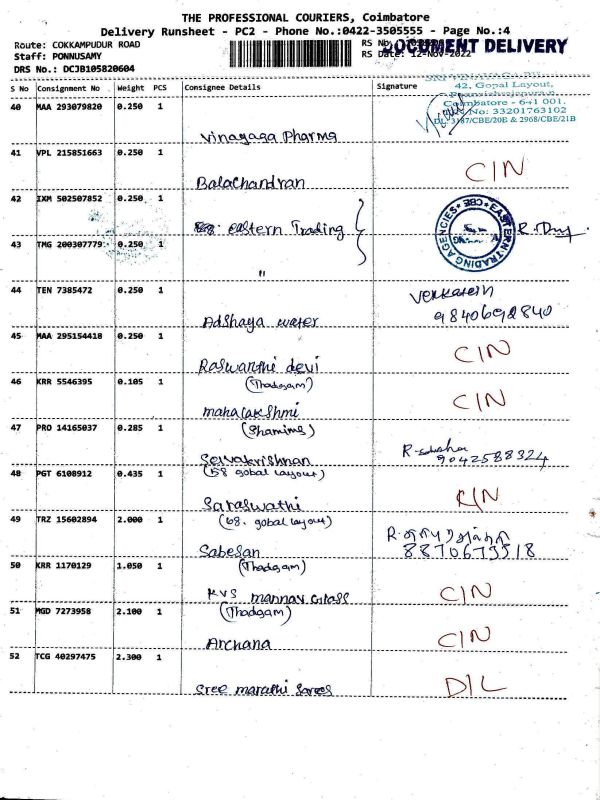 THE PROFESSIONAL COURIERS, Coimbatore
Delivery Runsheet - PC2 - Phone No.:0422-3505555 - Page No.:4
Route: COKKAMPUDUR ROAD
RS No
DOCUMENT DELIVERY
Staff: PONNUSAMY
RS Date: 12-Nov-2022
DRS No.: DCJB105820604
S No Consignment No Weight PCS Consignee Details Signature
42, Gopal Layout,
Coimbatore - 641 001.
No: 33201763102
3187/CBE/20B & 2968/CBE/21B
40 MAA 293079820 0.250 1
Vinayaga Pharma
41 VPL 215851663 0.250 1
Balachandran CIN
42 IXM 502507852 0.250 1
eastern Trading
EASTERN TRADING AGENCIES CBE
43 TMG 200307779 0.250 1
"
44 TEN 7385472 0.250 1
Adshaya water
9840692840
45 MAA 295154418 0.250 1
Raswanthi devi CIN
(Thadagam)
46 KRR 5546395 0.105 1
mahalakshmi CIN
(Shamims)
47 PRO 14165037 0.285 1
Selvakrishnan
9042588324
(58 gobal layout)
48 PGT 6108912 0.435 1
Saraswathi CIN
(68. gobal layout)
49 TRZ 15602894 2.000 1
Sabesan
8870673518
(Thadgam)
50 KRR 1170129 1.050 1
KVS mannav Glass CIN
(Thadgam)
51 MGD 7273958 2.100 1
Archana CIN
52 TCG 40297475 2.300 1
Sree marathi Sarees DIL